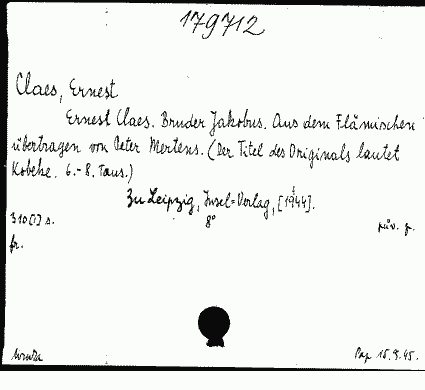 179712
Claes, Ernest
Ernest Claes. Bruder Jakobus. Aus dem Flämischen
übertragen von Peter Mertens. (Der Titel des Originals lautet
Kobeke. 6.-8. Taus.)
Zu Leipzig, Insel=Verlag, [1944].
310 [1] s. 8° pův. p.
fr.
Pap 15.9.45.